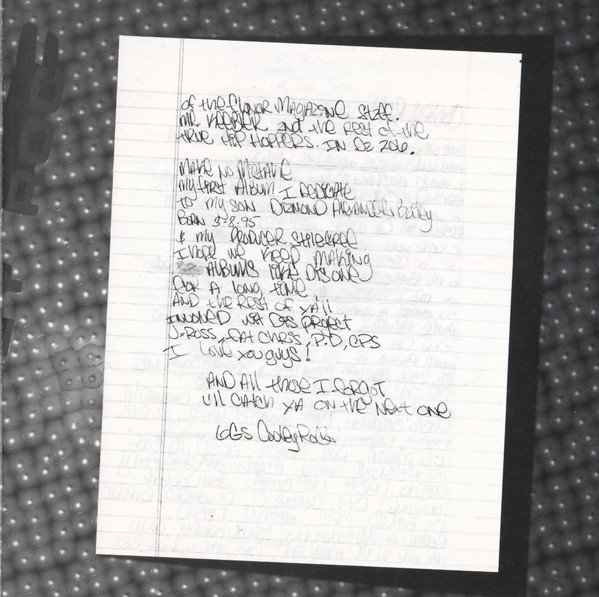 of the Flavor Magazine staff.
Mr. Keeber and the rest of the
true Hip Hoppers. IN Da 206.
Make no mistake
my first Album I Dedicate
to my son Dezmond Alexander Bailey
Born 3-8-95
& my Producer
I hope we keep making
Albums like Dis one
for A long time
And the rest of y'all
involved wit Dis project
J-Ross, Fat Chris, P.D, CPS
I love you guys!
And All those I forgot
I'll catch ya on the Next one